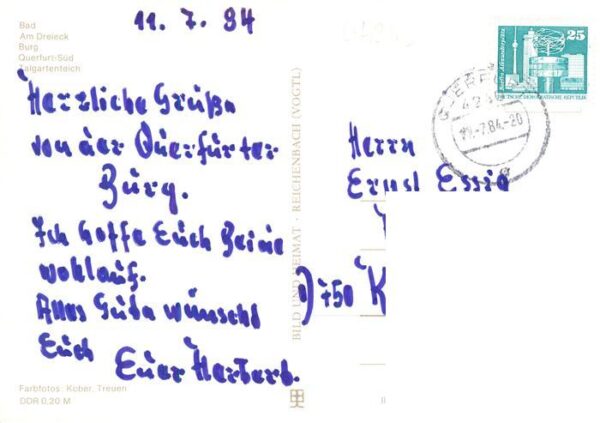 11.7.84
Bad
Am Dreieck
Burg
Querfurt-Süd
Talgartenteich
Herzliche Grüße
von der Querfurter
Burg.
Ich hoffe Euch Beide
wohlauf.
Alles Gute wünscht
Euch
Euer Herbert.
Farbfotos: Kober, Treuen
DDR 0,20 M
BILD UND HEIMAT · REICHENBACH (VOGTL)
25
Berlin, Alexanderplatz
DEUTSCHE DEMOKRATISCHE REPUBLIK
11.-7.84.-20
Herrn
Ernst Essig
750 K